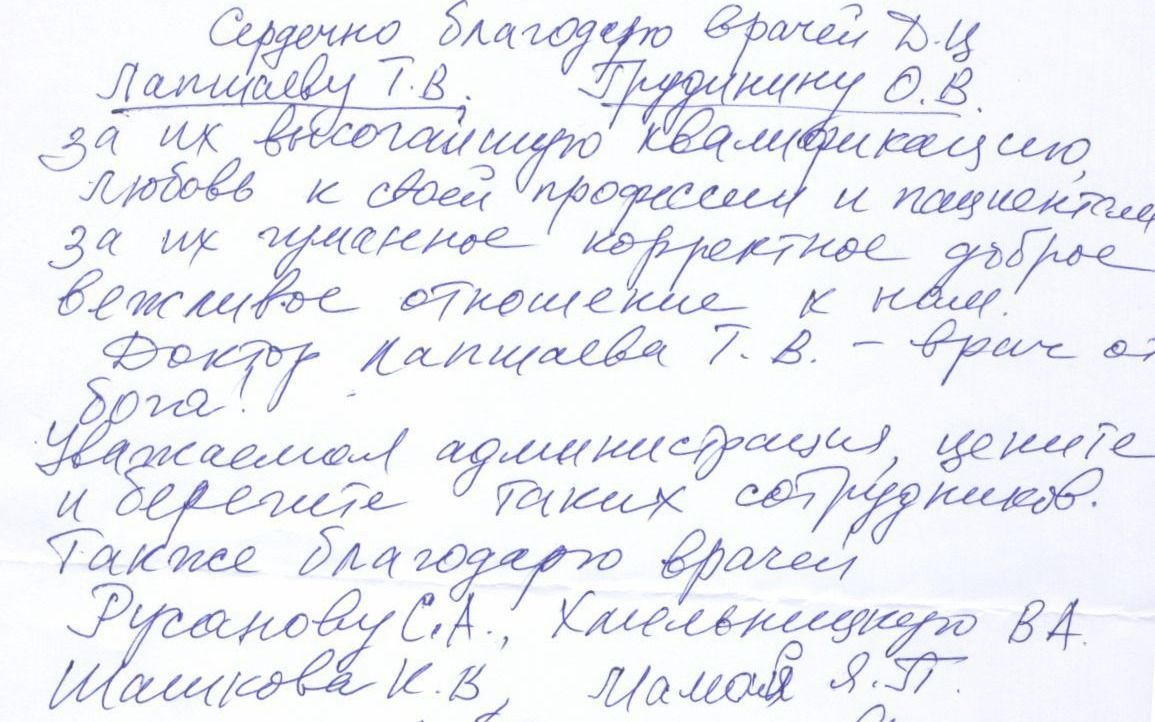 Сердечно благодарю врачей Д.Ц
Лапшаеву Т.В. Грудинину О.В.
за их высочайшую квалификацию,
любовь к своей профессии и пациентам
за их гуманное корректное доброе
вежливое отношение к нам.
Доктор Лапшаева Т.В. – врач от
бога!
Уважаемая администрация, цените
и берегите таких сотрудников.
Также благодарю врачей
Русанову С.А., Хмельницкую В А.
Шашкова К.В, Я.П.